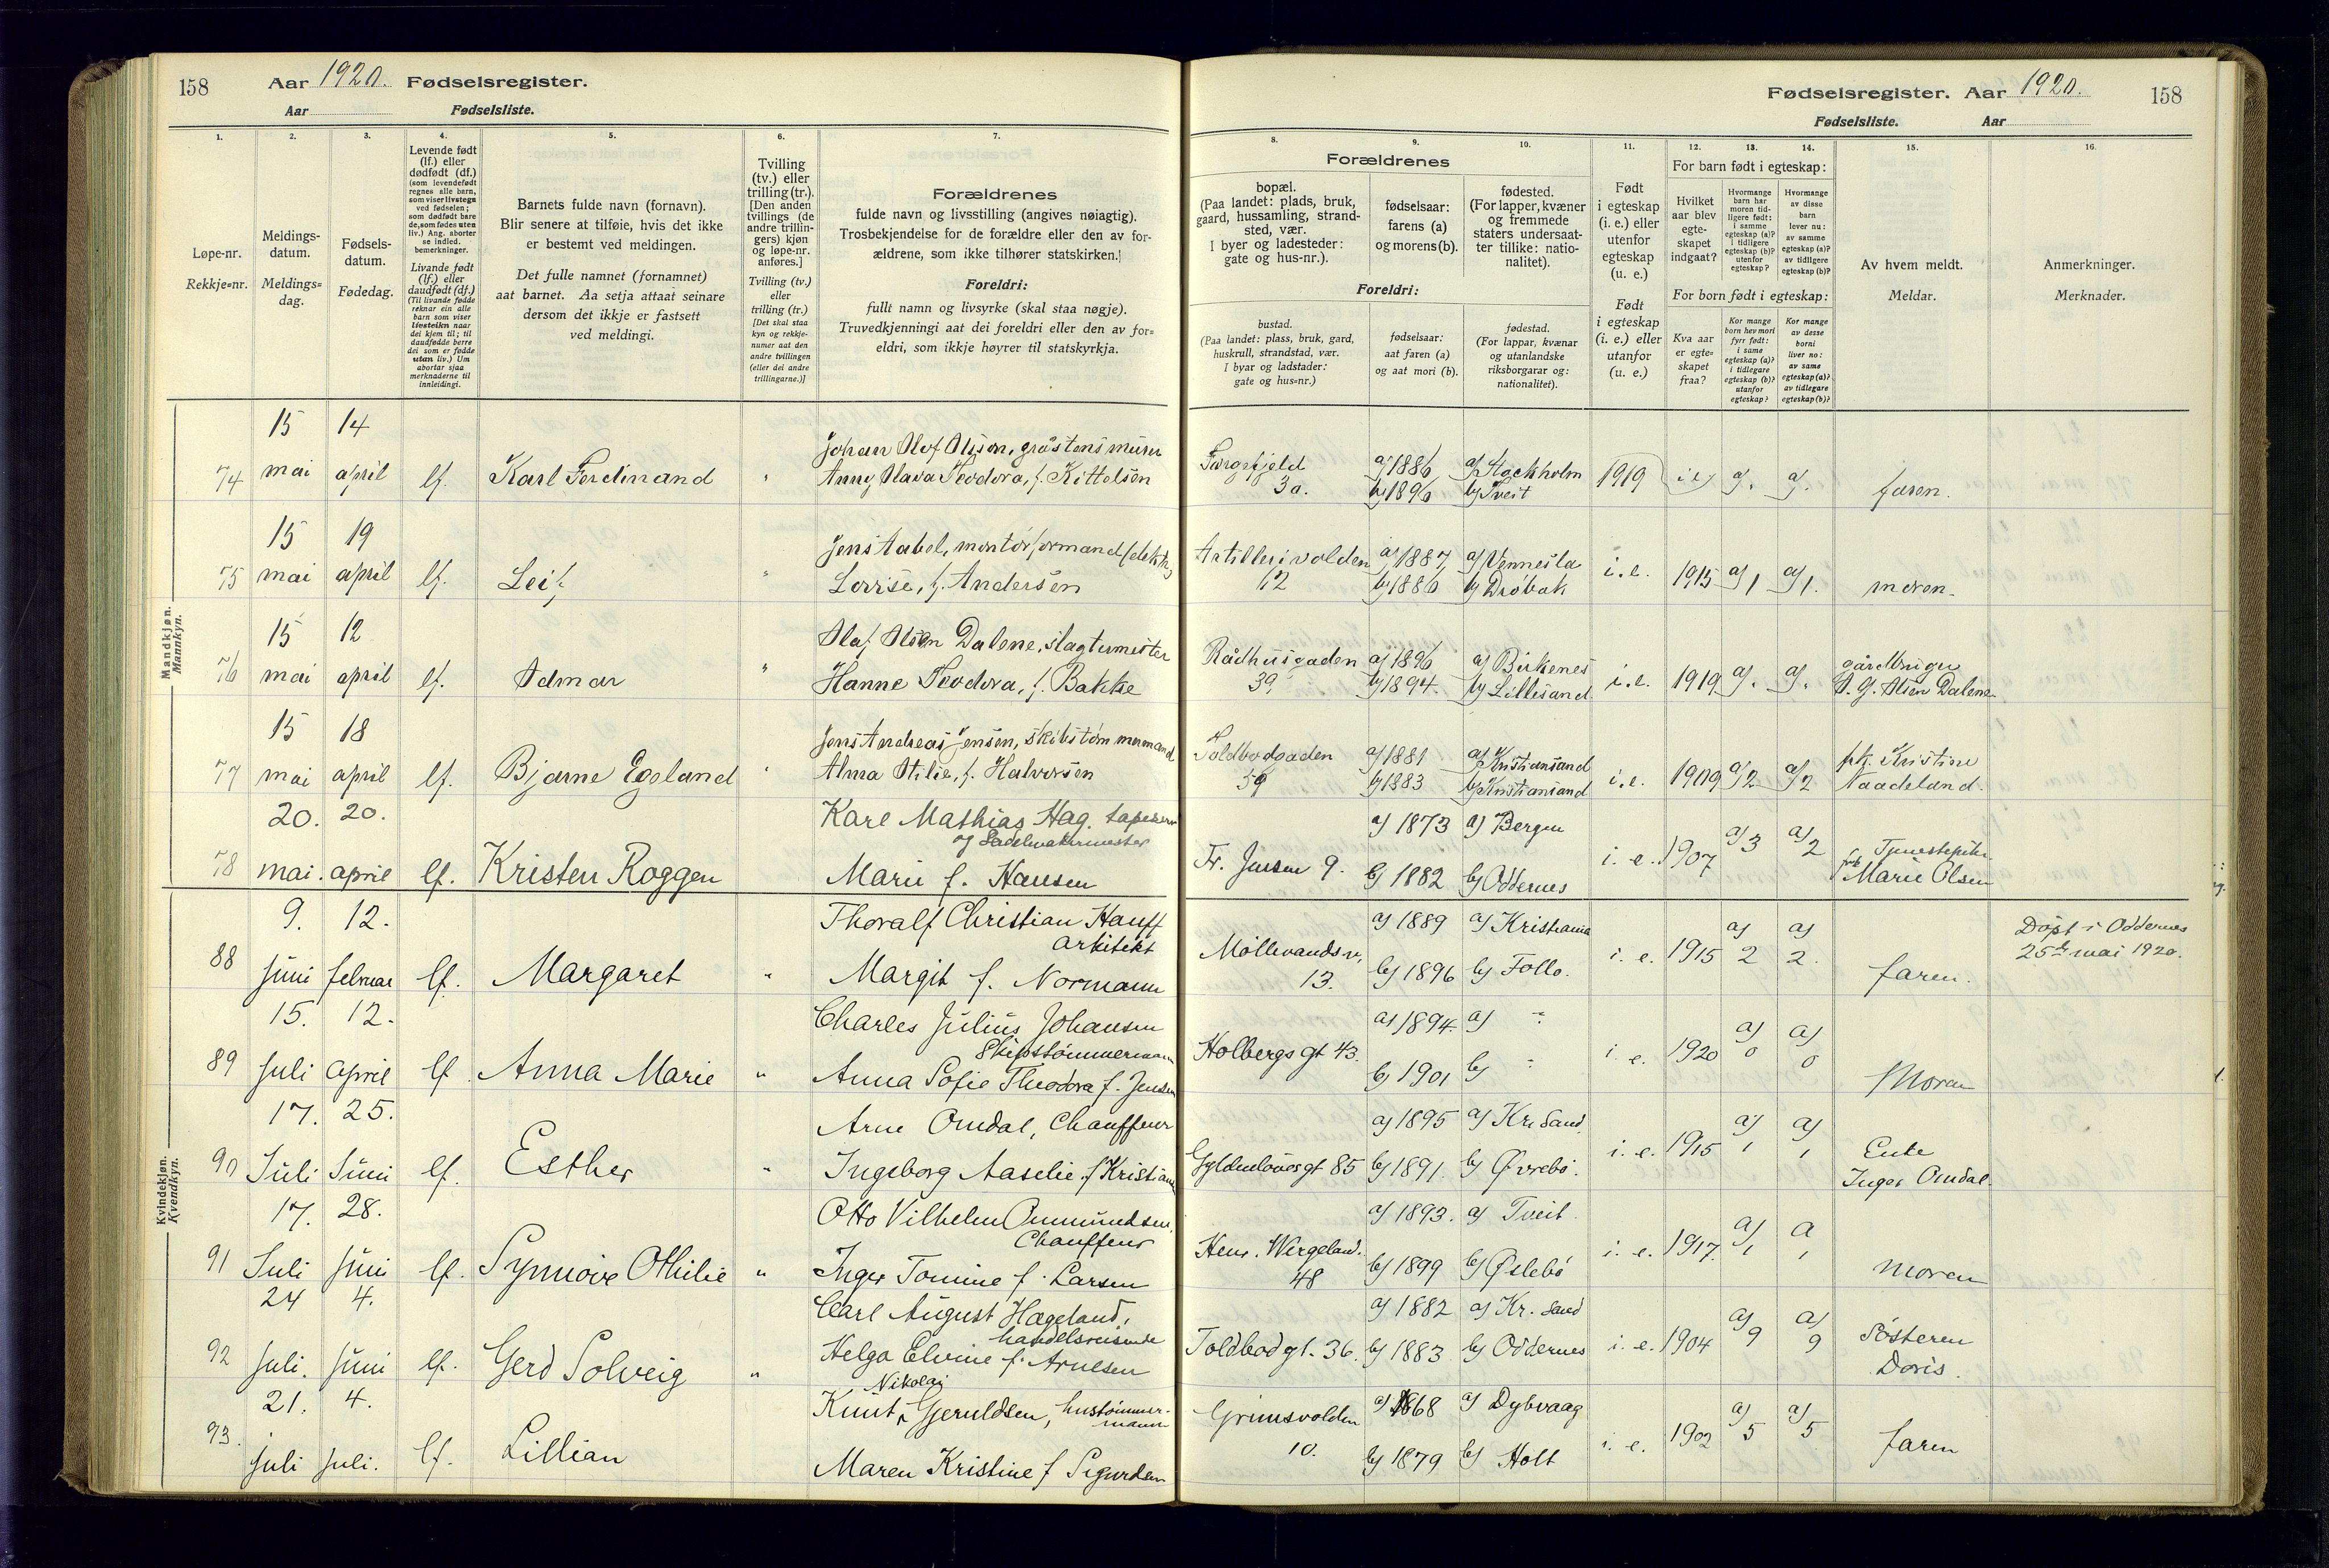 158 Aar 1920. Fødselsregister.
Aar Fødselsliste.
1. 2. 3. 4. 5. 6. 7.
Løpe-nr.
Rekkje=nr.
Meldings-
datum.
Meldings=
dag.
Fødsels-
datum.
Fødedag.
Levende født
(lf.) eller
dødfødt (df.)
(som levendefødt
regnes alle barn,
som viser livstegn
ved fødselen;
som dødfødt bare
de, som fødes uten
liv.) Ang. aborter
se indled.
bemerkninger.
Livande født
(lf.) eller
daudfødt (df.)
(Til livande fødde
reknar ein alle
barn som viser
livsteikn naar
dei kjem til; til
daudfødde berre
dei som er fødde
utan liv.) Um
abortar sjaa
merknaderne til
innleidingi.
Barnets fulde navn (fornavn).
Blir senere at tilføie, hvis det ikke
er bestemt ved meldingen.
Det fulle namnet (fornamnet)
aat barnet. Aa setja attaat seinare
dersom det ikkje er fastsett
ved meldingi.
Tvilling
(tv.) eller
trilling (tr.).
[Den anden
tvillings (de
andre trillin-
gers) kjøn
og løpe-nr.
anføres.]
Tvilling (tv.)
eller
trilling (tr.)
[Det skal staa
kyn og rekkje-
numer aat den
andre tvillingen
(eller dei andre
trillingarne.)]
Forældrenes
fulde navn og livsstilling (angives nøiagtig).
Trosbekjendelse for de forældre eller den av for-
ældrene, som ikke tilhører statskirken.]
Foreldri:
fullt namn og livsyrke (skal staa nøgje).
Truvedkjenningi aat dei foreldri eller den av for=
eldri, som ikkje høyrer til statskyrkja.
Mandkjøn.
Mannkyn.
15 14 Johan Olof Olsson, gråstensmurer
74 mai april lf. Karl Ferdinand " Anny Olava Teodora, f. Kittelsen
15 19 Jens Aabel, montørformand (elektr.)
75 mai april lf. Leif " Lovise, f. Andersen
15 12 Olaf Olsen Dalene, slagtermester
76 mai april lf. Odmar " Hanne Teodora, f. Bakke
15 18 Jens Andreas Jensen, skibstømmermand
77 mai april lf. Bjarne Egeland " Alma Otilie, f. Halvorsen
20. 20. Karl Mathias Hag. tapetserer
og Sadelmakermester
78 mai. april lf. Kristen Roggen Marie f. Hansen
Kvindekjøn.
Kvendkyn.
9. 12. Thoralf Christian Hauff
arkitekt
88 juni februar lf. Margaret " Margit f. Normann
15. 12. Charles Julius Johansen
Skipstømmermann
89 juli april lf. Anna Marie " Anna Sofie Theodora f. Jensen
17. 25. Arne Omdal, Chauffeur
90 Juli Juni lf. Esther " Ingeborg Aaselie f Kristiansen
17. 28. Otto Vilhelm Ommundsen,
Chauffeur
91 Juli Juni lf. Synnöve Othilie " Inger Tomine f. Larsen
24 4. Carl August Hægeland,
handelsreisende
92 juli. juni lf. Gerd Solveig " Helga Elvine f. Arnesen
21. 4. Nikolai
Knut Gjeruldsen, hustømmer-
mann
93. juli juli. lf. Lillian Maren Kristine f Sigurdsen
Fødselsregister. Aar 1920. 158
Fødselsliste. Aar
8. 9. 10. 11. 12. 13. 14. 15. 16.
Forældrenes
bopæl.
(Paa landet: plads, bruk,
gaard, hussamling, strand-
sted, vær.
I byer og ladesteder:
gate og hus-nr.).
fødselsaar:
farens (a)
og morens (b).
fødested.
(For lapper, kvæner
og fremmede
staters undersaat-
ter tillike: natio-
nalitet).
Foreldri:
bustad.
(Paa landet: plass, bruk, gard,
huskrull, strandstad, vær.
I byar og ladstader:
gate og hus=nr.)
fødselsaar:
aat faren (a)
og aat mori (b).
fødestad.
(For lappar, kvænar
og utanlandske
riksborgarar og:
nationalitet).
Født
i egteskap
(i. e.) eller
utenfor
egteskap
(u. e.)
Født
i egteskap
(i. e.) eller
utanfor
(u. e.)
For barn født i egteskap:
Hvilket
aar blev
egte-
skapet
indgaat?
Hvormange
barn har
moren tid-
ligere født:
i samme
egteskap (a)?
i tidligere
egteskap (b)?
utenfor
egteskap?
Hvormange
av disse
barn
lever nu:
av samme
egteskap (a)?
av tidligere
egteskap (b)?
For born født i egteskap:
Kva aar
er egte=
skapet
fraa?
Kor mange
born hev mori
fyrr født:
i same
egteskap (a)?
i tidlegare
egteskap (b)?
utanfor
egteskap?
Kor mange
av desse
borni
liver no:
av same
egteskap (a)?
av tidlegare
egteskap (b)?
Av hvem meldt.
Meldar.
Anmerkninger.
Merknader.
a) 1886 a) Stockholm
30. b) 1896 b) Tveit 1919 i.e. a). a). faren.
Artillerivolden a) 1887 a) Vennesla
12 b) 1886 b) Drøbak i.e. 1915 a) 1 a) 1. moren.
Rådhusgaden a) 1896 a) Birkenes gårdbruger
39 b) 1894. b) Lillesand i.e. 1919 a). a). O. G. Olsen Dalene
Toldbodgaden a) 1881 a) Kristiansand frk. Kristine
59 b) 1883 b) Kristiansand i.e. 1909 a) 2 a) 2 Naadeland.
a) 1873 a) Bergen Tjenestepike
Fr. Jensen 9. b) 1882 b) Oddernes i. e. 1907 a) 3 a) 2 Marie Olsen
a) 1889 a) Kristiania Døpt i Oddernes
Möllevandsv. i. e. 1915 a) 2 a) 2. 25de mai 1920.
13. b) 1896 b) Follo. faren.
a) 1894. a) "
Holbergs gt 43. i. e. 1920 a) 0 a) 0
b) 1901 b) " Moren
a) 1895 a) Kr. Sand.
Gyldenlöves gt 85 b) 1891. b) Øvrebö. i. e. 1915 a) 1 a) 1 Enke
Inger Omdal.
a) 1893. a) Tveit.
Henr. Wergeland. i. e. 1917. a) 1 a 1
48 b) 1899 b) Øslebö moren
a) 1882 a) Kr. Sand
Toldbodgt. 36. b) 1883 b) Oddernes i. e. 1904 a) 9 a) 9 Søsteren
Doris.
Grimsvolden a) 1868 a) Dybvaag
10. b) 1879 b) Holt i. e. 1902 a) 5 a) 5 faren